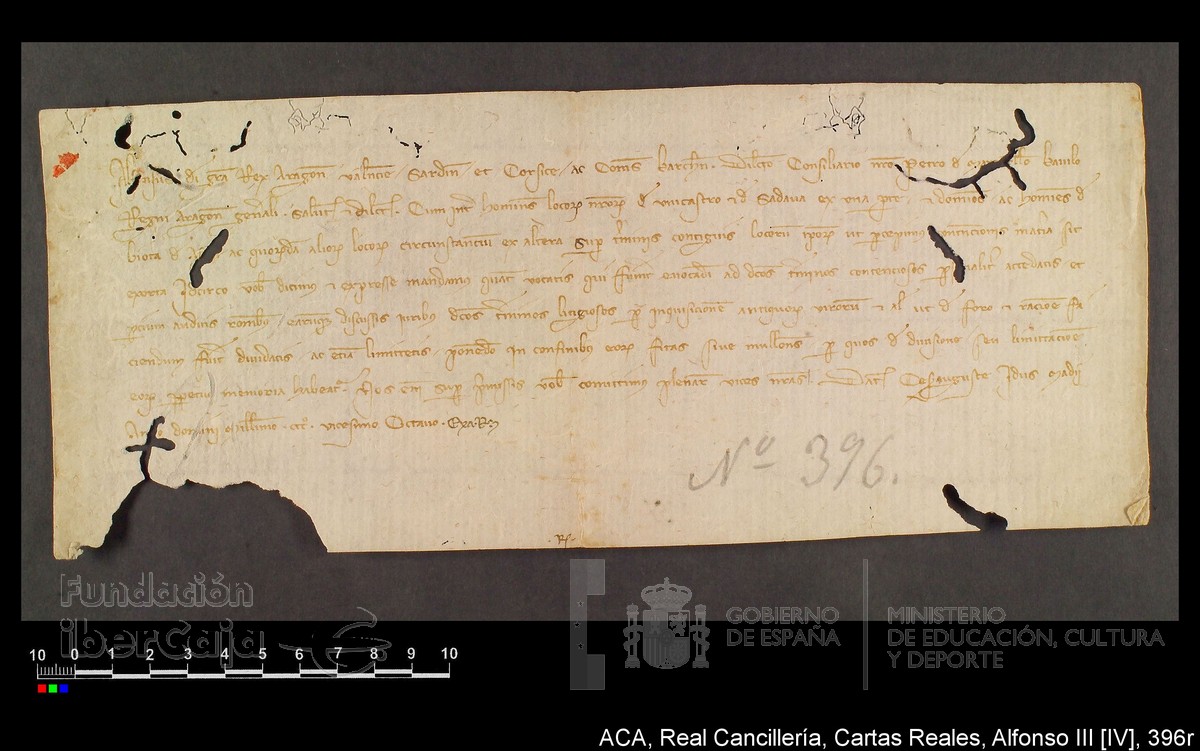 di gra Rex Aragon Valencie Sardin et Corsice ac Comes Barchn. Dilecto Consiliario nro Petro d baiulo
Regni Aragon gnali. Salut & dilect. Cum int homines locorum nrorum d Unicastro & d Sadava ex una parte & dominos ac homines d
biota d ac quorda aliorum locorum circunstancium ex altera sup tminis contiguis locorum iporum ut pcepimus contencionis materia sit
exorta Idcirco vob dicimus & expresse mandamus quat vocatis qui fuerint evocadi ad dcos tminos contenciosos psonaliter accedatis et
partium auditis ronibus earumque discussis iuribus dcos tminos litigiosos p inquisicione antiquorum virorum & al ut d foro & racione fa
ciendum fuerit dividatis ac etia limitetis ponedo in confinibus eorum fitas sive mullons p quos d divisione seu limitacione
eorum ppetuo memoria habeatur. Nos em sup pmissis vob comittimus plenar vices nras. Dat Cesarauguste Idus Madii
Anno domini Millimo CCC vicesimo Octavo.
Nº 396.
Fundación
iberCaja
GOBIERNO
DE ESPAÑA
MINISTERIO
DE EDUCACIÓN, CULTURA
Y DEPORTE
10 0 1 2 3 4 5 6 7 8 9 10
ACA, Real Cancillería, Cartas Reales, Alfonso III [IV], 396r